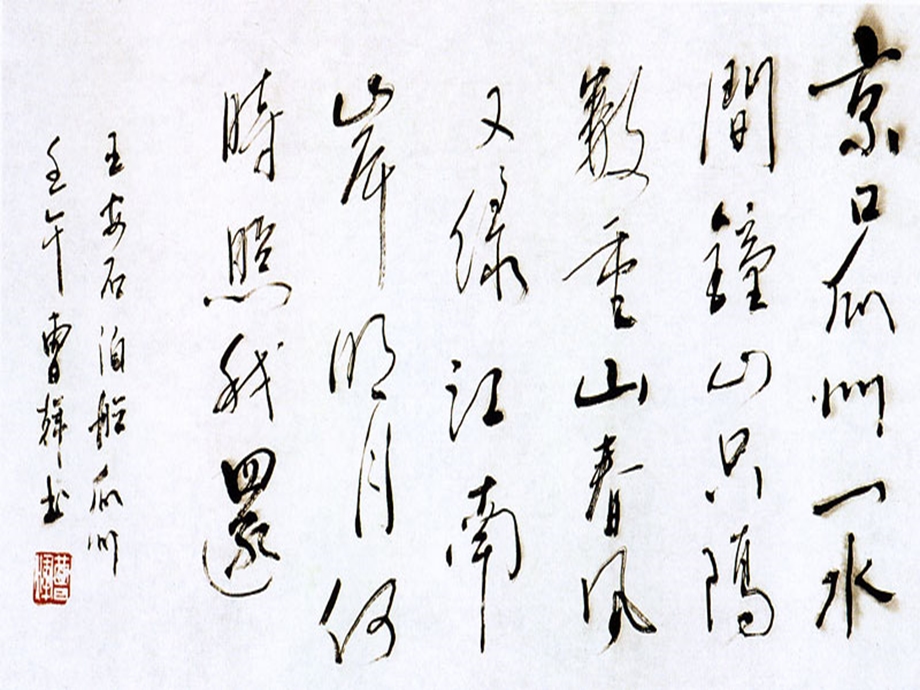 京口瓜州一水
間鐘山只隔
數重山春風
又緑江南
岸明月何
時照我還
王安石泊船瓜州
壬午曹輝书